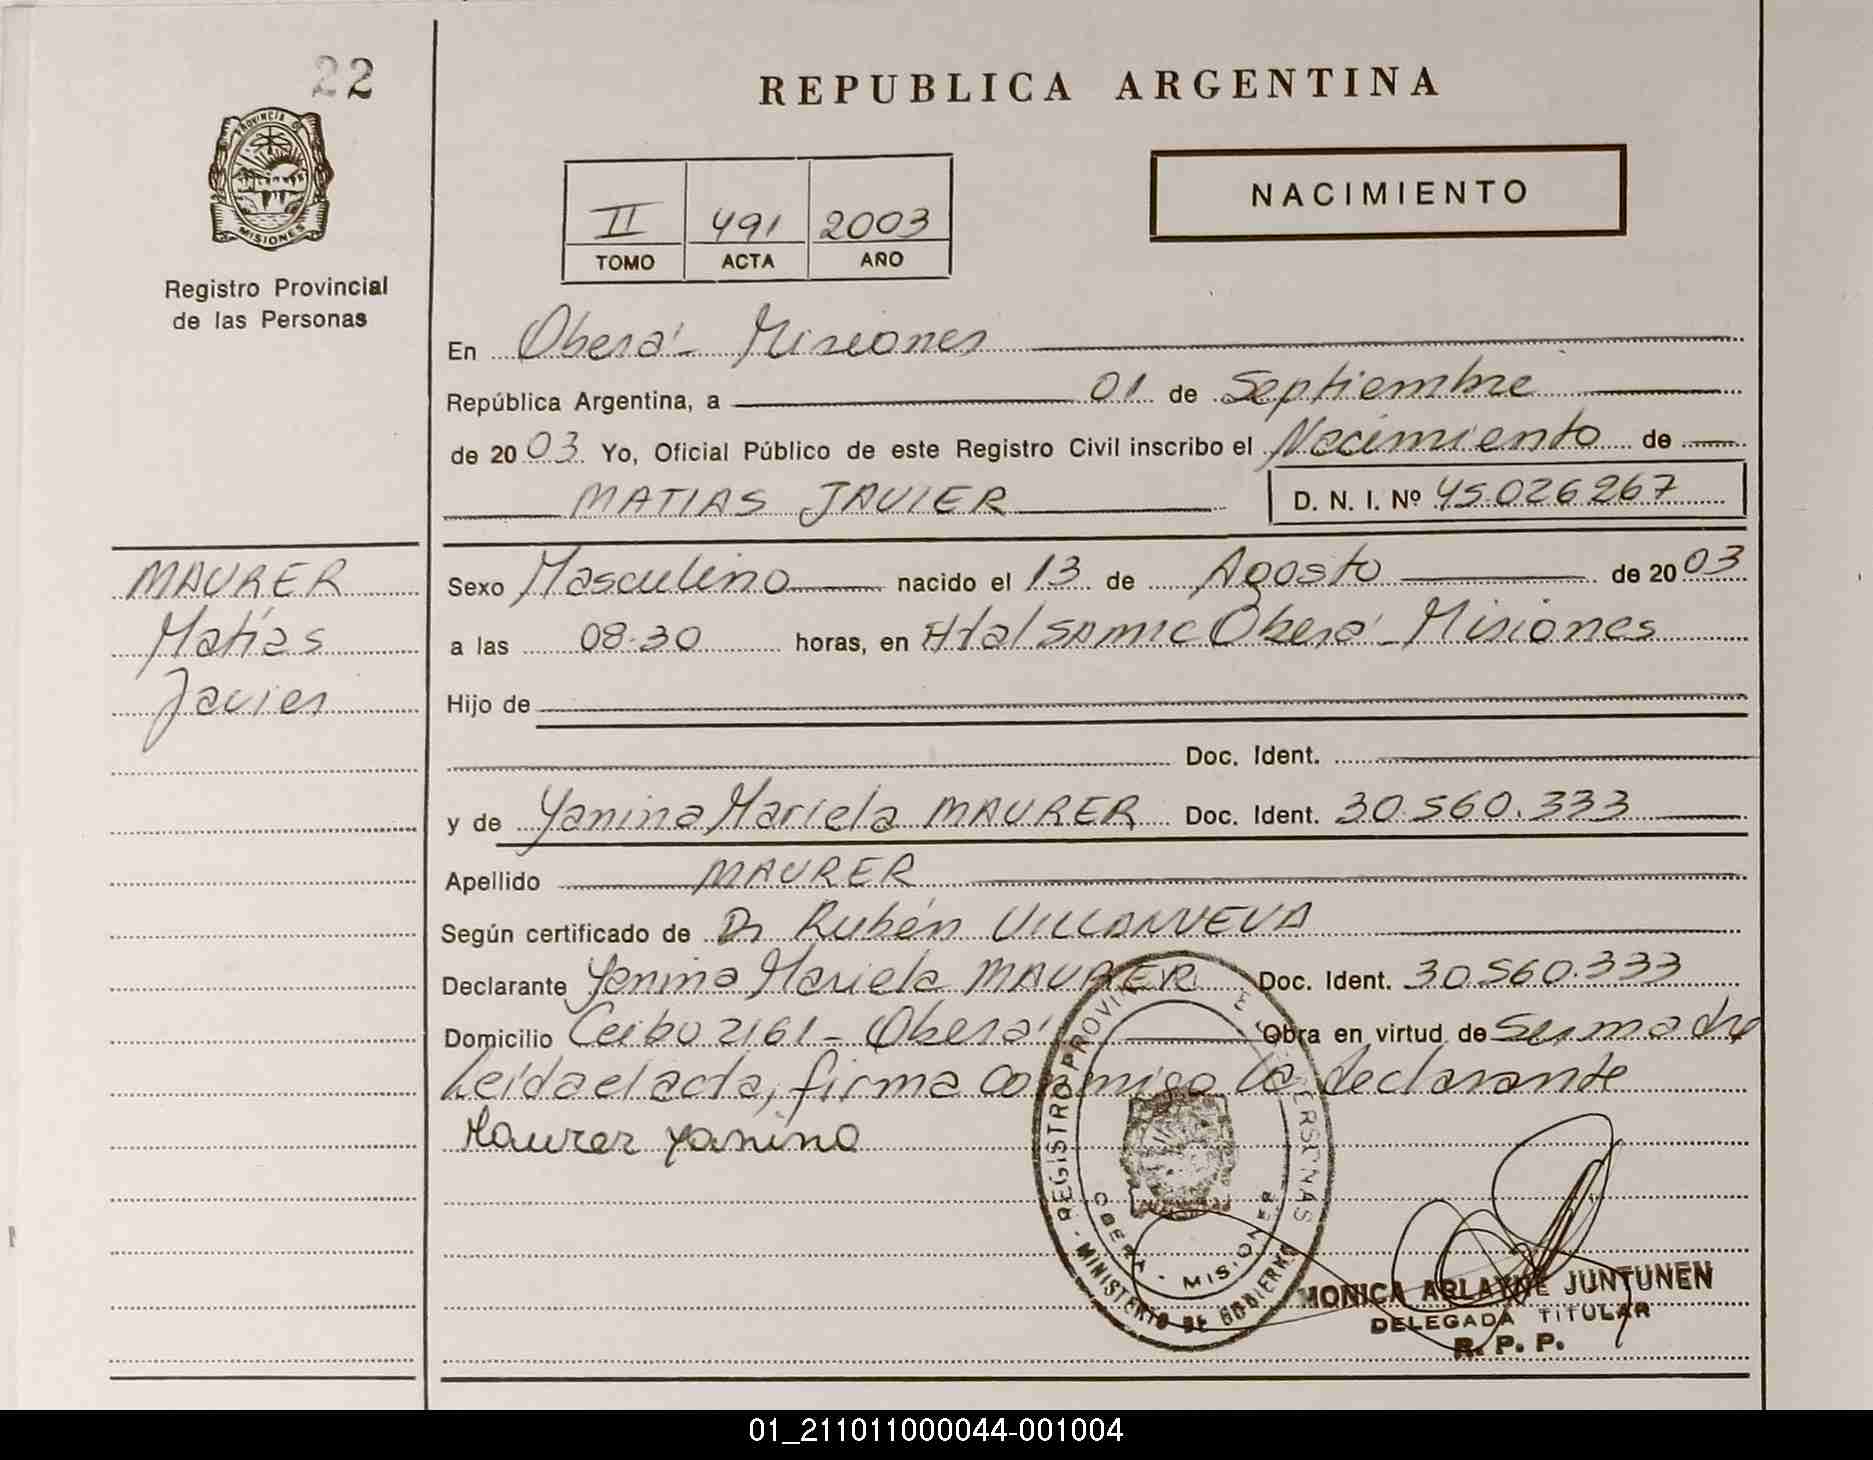 22
PROVINCIA D
MISIONES
Registro Provincial
de las Personas
REPUBLICA ARGENTINA
II 491 2003
TOMO ACTA AÑO
NACIMIENTO
En Oberá - Misiones
República Argentina, a 01 de Septiembre
de 2003 Yo, Oficial Público de este Registro Civil inscribo el Nacimiento de
MATIAS JAVIER D. N. I. Nº 45.026.267
MAURER
Matías
Javier
Sexo Masculino nacido el 13 de Agosto de 2003
a las 08.30 horas, en Htal SAMIC Oberá - Misiones
Hijo de
Doc. Ident.
y de Yanina Mariela MAURER Doc. Ident. 30.560.333
Apellido MAURER
Según certificado de Dr Rubén VILLANUEVA
Declarante Yanina Mariela MAURER Doc. Ident. 30.560.333
Domicilio Ceibo 2161 - Oberá Obra en virtud de Ser madre
Leída el acta, firma conmigo la declarante
Maurer Yanina
REGISTRO PROVIN E ERSONAS
OBERA - MISIONES
MINISTERIO DE GOBIERNO
MONICA ARLAYNE JUNTUNEN
DELEGADA TITULAR
R. P. P.
01_211011000044-001004